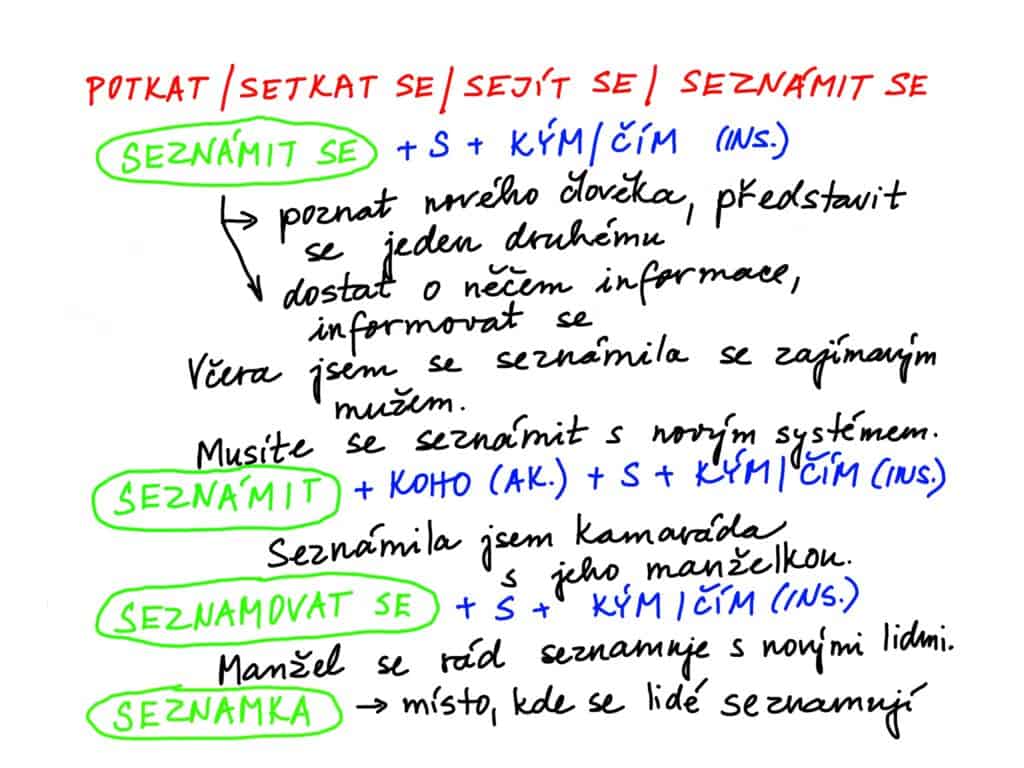 POTKAT / SETKAT SE / SEJÍT SE / SEZNÁMIT SE
SEZNÁMIT SE + S + KÝM / ČÍM (INS.)
→ poznat nového člověka, představit
se jeden druhému
dostat o něčem informace,
informovat se
Včera jsem se seznámila se zajímavým
mužem.
Musíte se seznámit s novým systémem.
SEZNÁMIT + KOHO (AK.) + S + KÝM / ČÍM (INS.)
Seznámila jsem kamaráda
s jeho manželkou.
SEZNAMOVAT SE + S + KÝM / ČÍM (INS.)
Manžel se rád seznamuje s novými lidmi.
SEZNAMKA → místo, kde se lidé seznamují